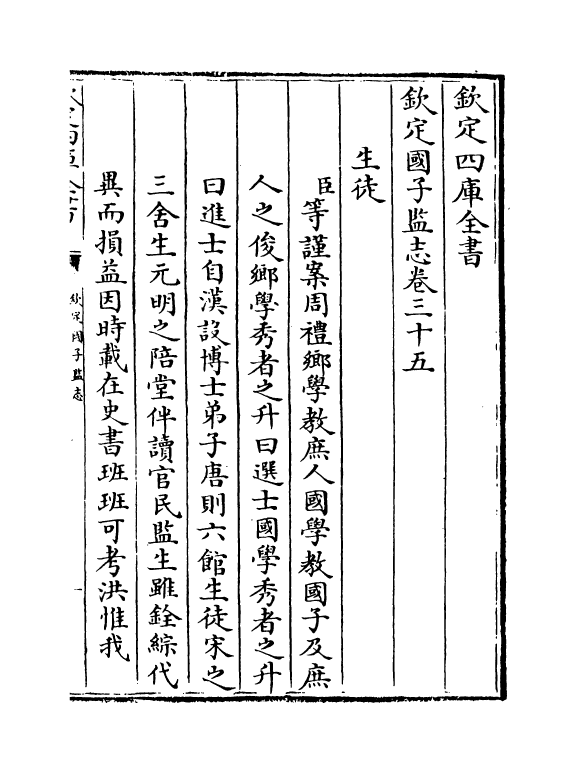 欽定四庫全書
欽定國子監志卷三十五
生徒
臣等謹案周禮鄉學教庶人國學教國子及庶
人之俊鄉學秀者之升曰選士國學秀者之升
曰進士自漢設博士弟子唐則六館生徒宋之
三舍生元明之陪堂伴讀官民監生雖銓綜代
異而損益因時載在史書班班可考洪惟我
欽定國子監志